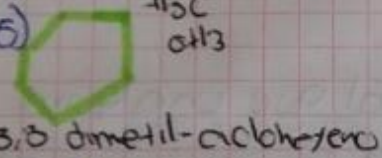 5)
H3C
CH3
3,3 dimetil-ciclohexeno